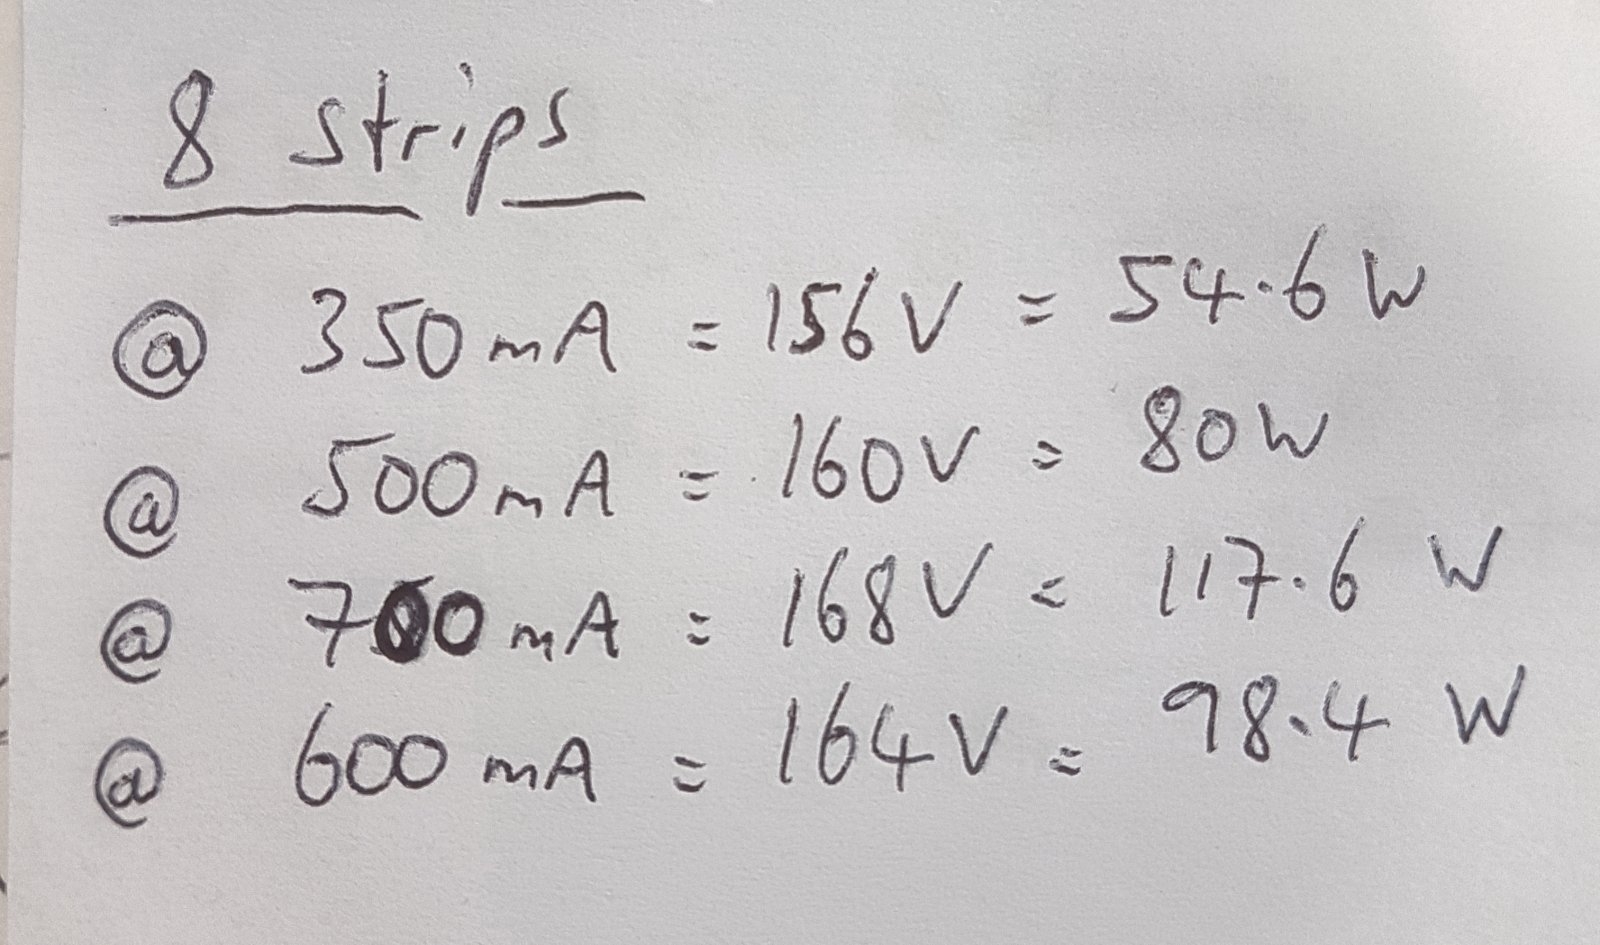 8 strips
@ 350mA = 156V = 54.6W
@ 500mA = 160V = 80W
@ 700mA = 168V = 117.6 W
@ 600mA = 164V = 98.4 W